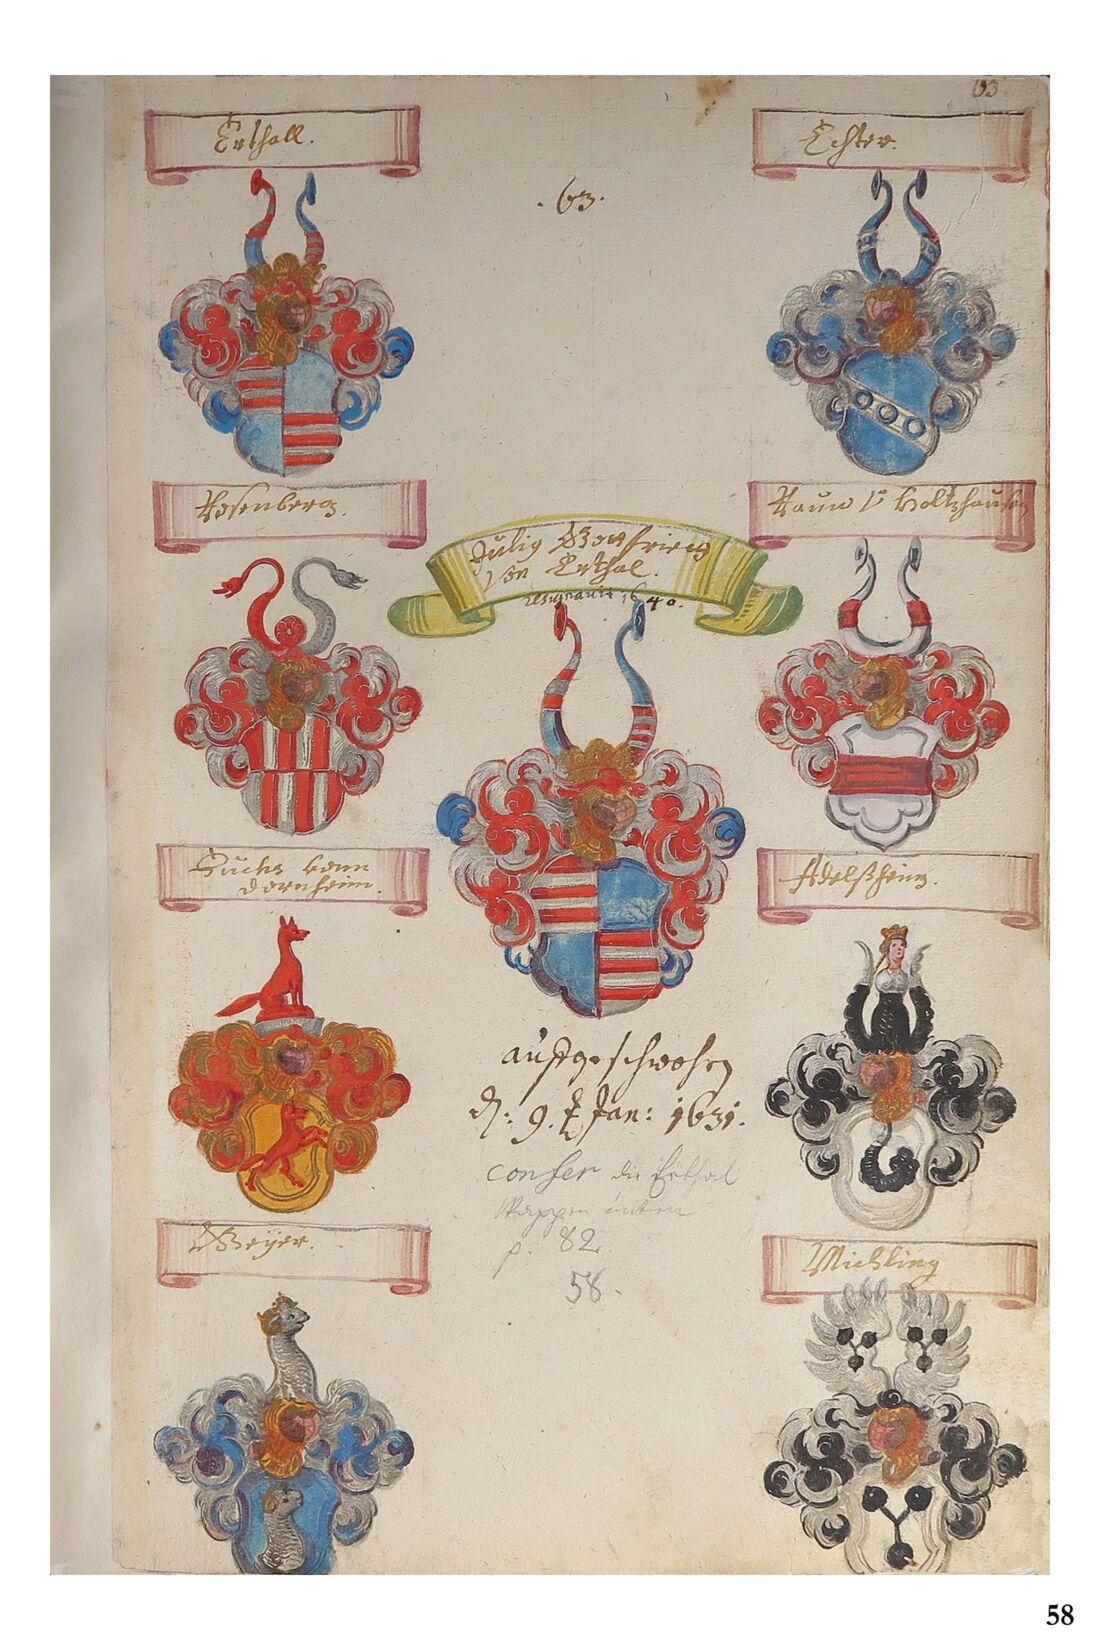 63
Erthall.
Echter.
.63.
Rosenberg.
Raun v Holtzhausen
Julig Gottfried
Von Erthal.
resignavit 1640.
Fuchs vonn
dornheim.
Adelßheim.
auffgeschworn
d: 9. Jan: 1631.
confer die Erthal
Wappen unten
p. 82.
58.
Weÿer.
Michling
58